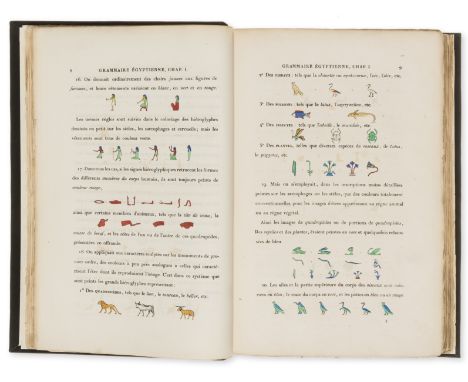 8 GRAMMAIRE ÉGYPTIENNE, CHAP. I.
16. On donnait ordinairement des chairs jaunes aux figures de
femmes, et leurs vêtements variaient en blanc, en vert et en rouge.
Les mêmes règles sont suivies dans le coloriage des hiéroglyphes
dessinés en petit sur les stèles, les sarcophages et cercueils; mais les
vêtements sont tous de couleur verte.
17. Dans tous les cas, si les signes hiéroglyphiques retracent les formes
des différents membres du corps humain, ils sont toujours peints de
couleur rouge,
ainsi que certains membres d'animaux, tels que la tête
présentées en offrande.
18. On appliquait aux caractères sculptés sur les monuments de premier
ordre, des couleurs à peu près analogues à celles qui caractérisent
l'être dont ils reproduisent l'image. C'est dans ce système que
sont peints les grands hiéroglyphes représentant:
1° Des quadrupèdes, tels que le lion, le taureau, le bélier, etc.
GRAMMAIRE ÉGYPTIENNE, CHAP. I. 9
2° Des oiseaux, tels que la chouette ou nycticorax, l'oie, l'ibis, etc.
3° Des poissons, tels que le latus, l'oxyrynchus, etc.
4° Des insectes, tels que l'abeille, le scarabée, etc.
5° Des plantes, telles que diverses espèces de roseaux, de lotus,
le papyrus, etc.
19. Mais on n'employait, dans les inscriptions moins détaillées
peintes sur les sarcophages ou les stèles, que des couleurs totalement
conventionnelles, pour les images d'êtres appartenant au règne animal
ou au règne végétal.
Ainsi les images de quadrupèdes ou de portions de quadrupèdes,
des reptiles et des plantes, étaient peintes en vert et quelquefois
de bleu
20. Les ailes et la partie supérieure du corps des oiseaux sont
en bleu, le reste du corps en vert, et les pattes en bleu ou en rouge